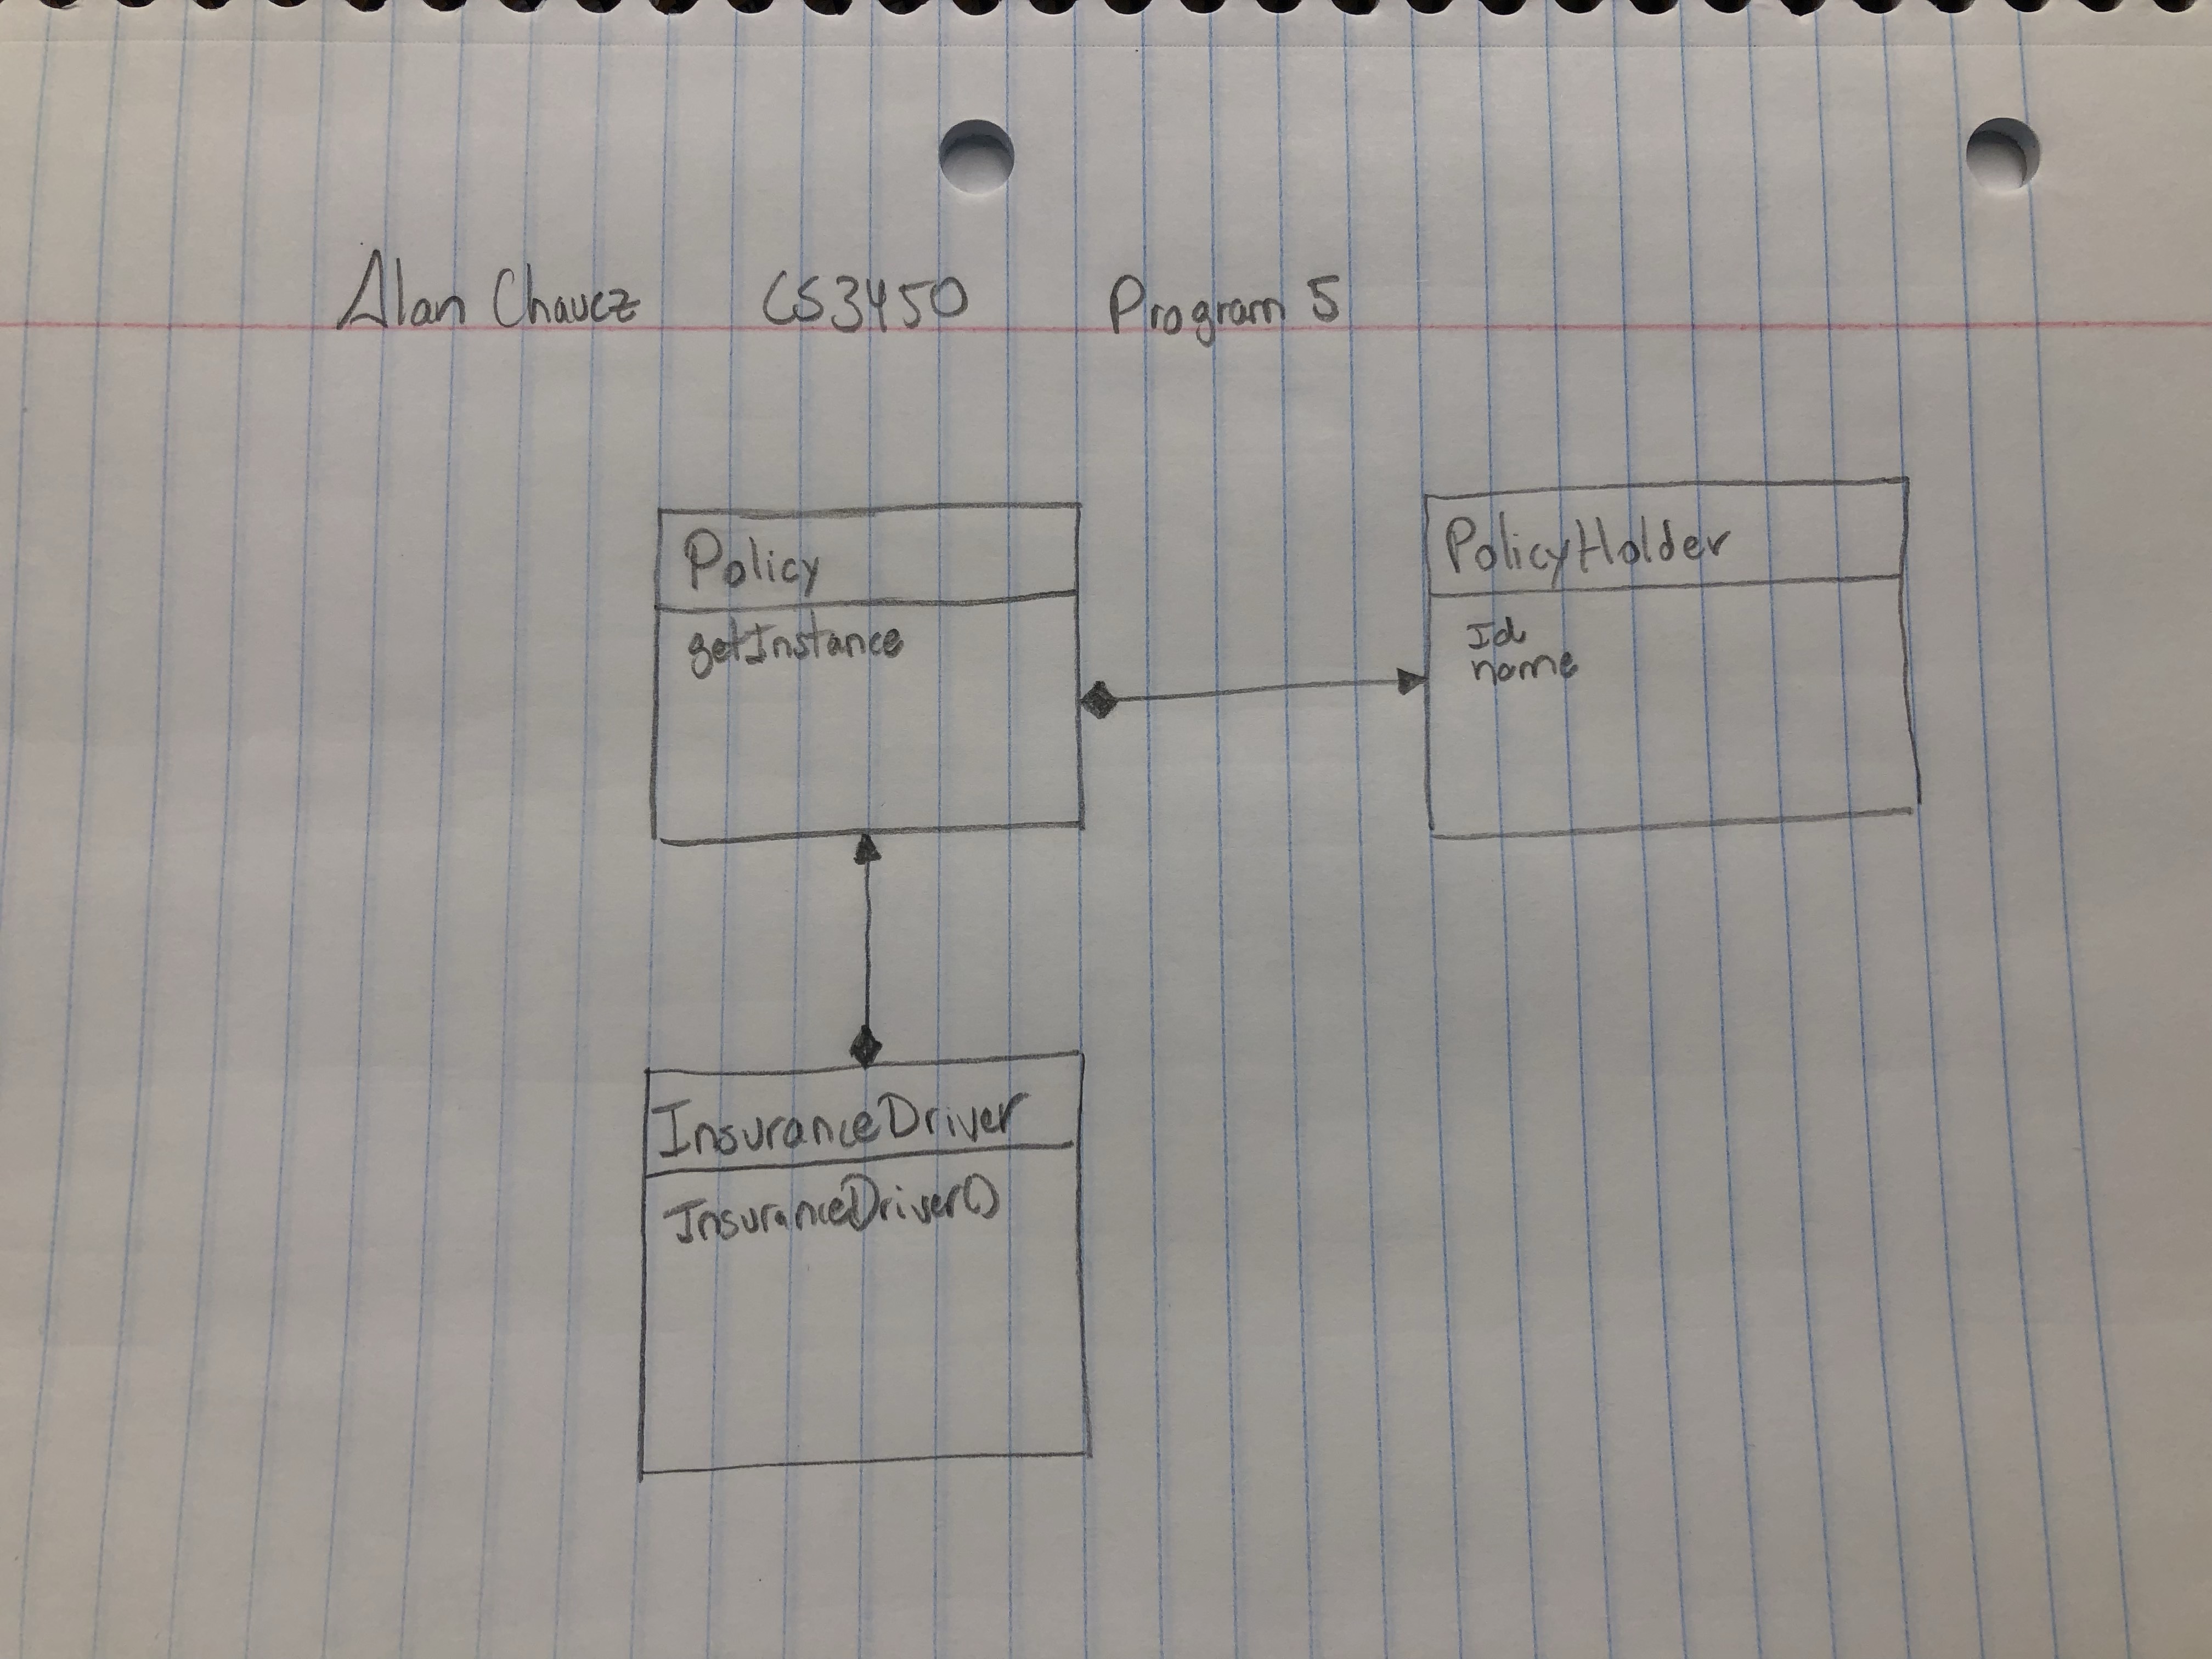 Alan Chavez CS3450 Program 5
Policy
getInstance
PolicyHolder
Id
name
InsuranceDriver
InsuranceDriver()